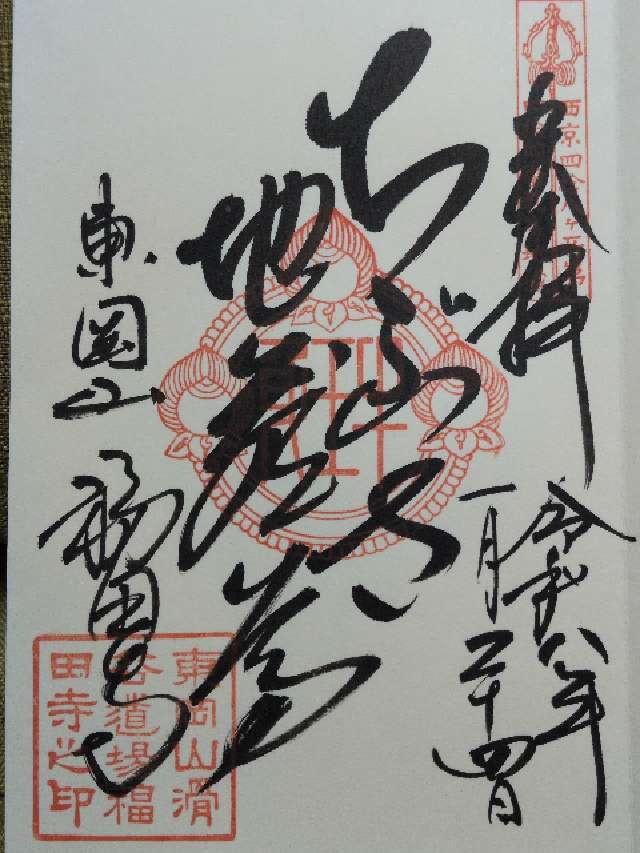 奉拝
令和八年
一月二十四日
ちぶさ
地蔵尊
東岡山
福田寺
西京四十八ヶ寺
東岡山滑
谷道場福
田寺之印